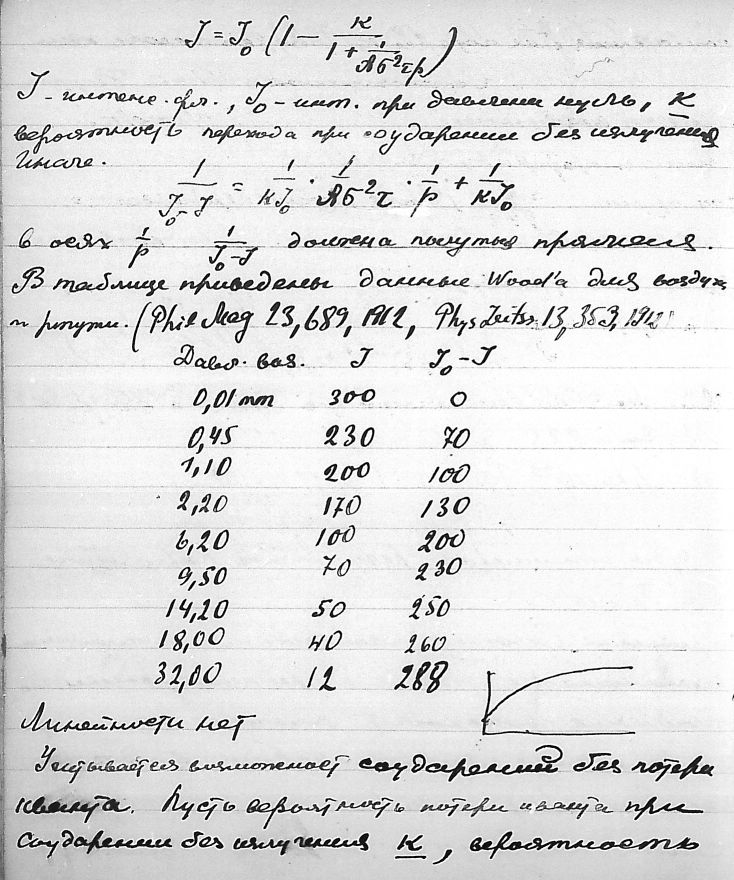 J = J₀ (1 − K / (1 + 1/(Aσ²τp)))
J – интенс. фл., J₀ – инт. при давлении нуль, K
вероятность перехода при соударении без излучения
Иначе.
1/(J₀−J) = 1/(KJ₀) · 1/(Aσ²τ) · 1/p + 1/(KJ₀)
в осях 1/p 1/(J₀−J) должна получиться прямая.
В таблице приведены данные Wood'a для воздуха
и ртути. (Phil Mag 23, 689, 1912, Phys Zeits. 13, 353, 1912
Давл. воз. J J₀−J
0,01 mm 300 0
0,45 230 70
1,10 200 100
2,20 170 130
6,20 100 200
9,50 70 230
14,20 50 250
18,00 40 260
32,00 12 288
Линейности нет
Учитывается возможност соударений без потери
кванта. Пусть вероятность потери кванта при
соударении без излучения K, вероятность